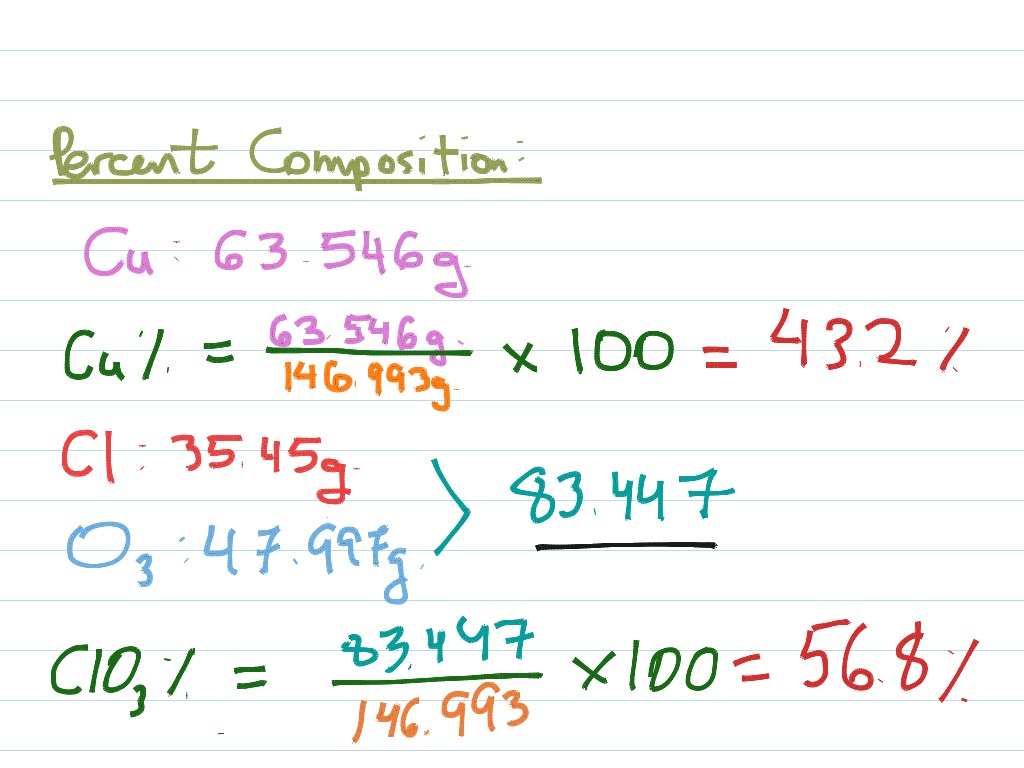 Percent Composition:
Cu: 63.546g
Cu% = 63.546g / 146.993g × 100 = 43.2%
Cl: 35.45g
O₃: 47.997g
83.447
ClO₃% = 83.447 / 146.993 × 100 = 56.8%